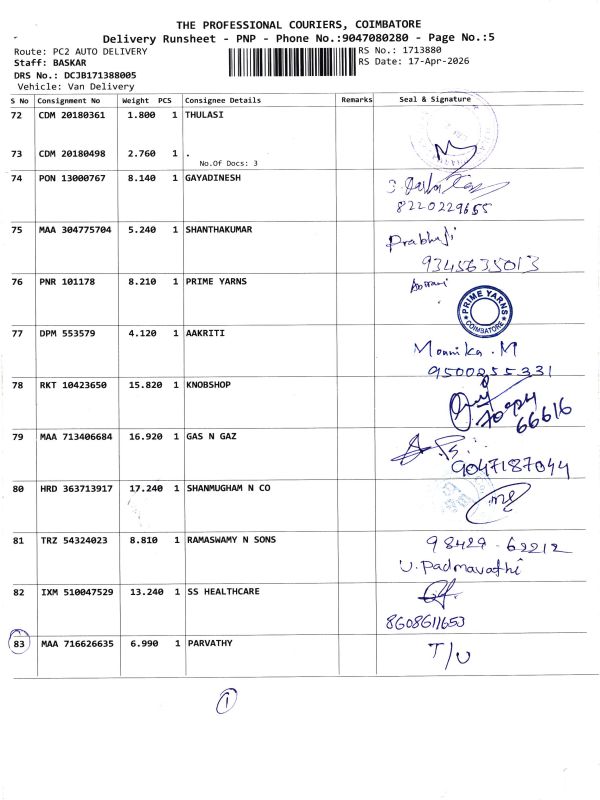 THE PROFESSIONAL COURIERS, COIMBATORE
Delivery Runsheet - PNP - Phone No.:9047080280 - Page No.:5
Route: PC2 AUTO DELIVERY RS No.: 1713880
Staff: BASKAR RS Date: 17-Apr-2026
DRS No.: DCJB171388005
Vehicle: Van Delivery
S No Consignment No Weight PCS Consignee Details Remarks Seal & Signature
72 CDM 20180361 1.800 1 THULASI
73 CDM 20180498 2.760 1 .
No.Of Docs: 3
74 PON 13000767 8.140 1 GAYADINESH
8220229655
75 MAA 304775704 5.240 1 SHANTHAKUMAR Prabhaji
9345635013
76 PNR 101178 8.210 1 PRIME YARNS
PRIME YARNS
COIMBATORE
77 DPM 553579 4.120 1 AAKRITI Mounika.M
9500255331
78 RKT 10423650 15.820 1 KNOBSHOP
66616
79 MAA 713406684 16.920 1 GAS N GAZ
9047187044
80 HRD 363713917 17.240 1 SHANMUGHAM N CO
81 TRZ 54324023 8.810 1 RAMASWAMY N SONS 98429-62212
U.Padmavathi
82 IXM 510047529 13.240 1 SS HEALTHCARE
8608611653
83 MAA 716626635 6.990 1 PARVATHY T/U
1